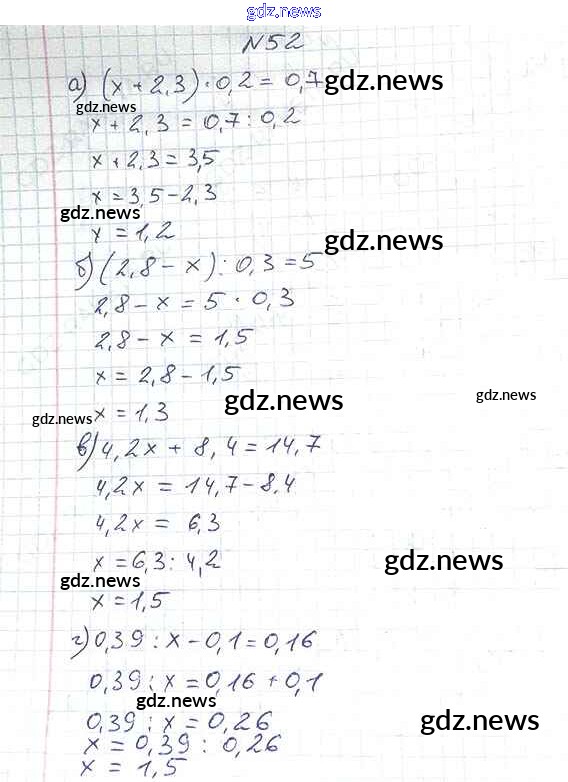 gdz.news
N52
а) (x + 2,3) · 0,2 = 0,7
gdz.news
gdz.news
x + 2,3 = 0,7 : 0,2
x + 2,3 = 3,5
x = 3,5 - 2,3
gdz.news
x = 1,2
gdz.news
б) (2,8 - x) : 0,3 = 5
2,8 - x = 5 · 0,3
2,8 - x = 1,5
x = 2,8 - 1,5
gdz.news
gdz.news
gdz.news
x = 1,3
в) 4,2x + 8,4 = 14,7
4,2x = 14,7 - 8,4
4,2x = 6,3
x = 6,3 : 4,2
gdz.news
gdz.news
x = 1,5
г) 0,39 : x - 0,1 = 0,16
0,39 : x = 0,16 + 0,1
gdz.news
0,39 : x = 0,26
gdz.news
x = 0,39 : 0,26
x = 1,5